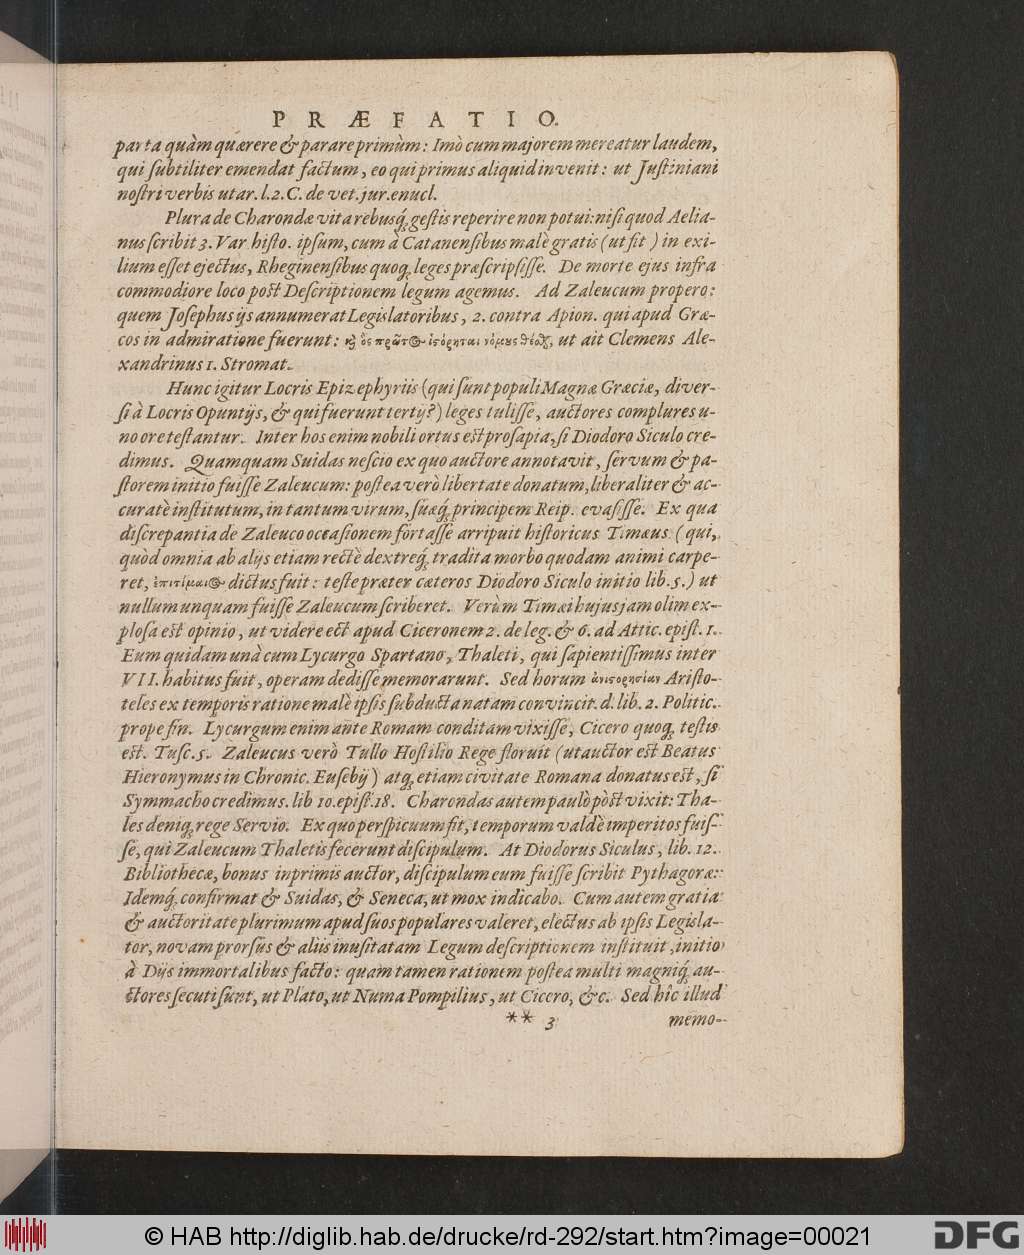 PRÆFATIO.
parta quàm quærere & parare primùm: Imò cum majorem mereatur laudem,
qui subtiliter emendat factum, eo qui primus aliquid invenit: ut Justiniani
nostri verbis utar. l. 2. C. de vet. jur. enucl.
Plura de Charondæ vita rebusq́; gestis reperire non potui: nisi quod Aelia-
nus scribit 3. Var histo. ipsum, cum à Catanensibus malè gratis (ut fit ) in exi-
lium esset ejectus, Rheginensibus quoq; leges præscripsisse. De morte ejus infra
commodiore loco post Descriptionem legum agemus. Ad Zaleucum propero:
quem Josephus ijs annumerat Legislatoribus, 2. contra Apion. qui apud Græ-
cos in admiratione fuerunt: ὃς πρῶτος ἱςόρηται νόμους ut ait Clemens Ale-
xandrinus 1. Stromat.
Hunc igitur Locris Epizephyriis (qui sunt populi Magnæ Græciæ, diver-
si à Locris Opuntijs, & qui fuerunt tertij?) leges tulisse, auctores complures u-
no ore testantur. Inter hos enim nobili ortus est prosapia, si Diodoro Siculo cre-
dimus. Quamquam Suidas nescio ex quo auctore annotavit, servum & pa-
storem initio fuisse Zaleucum: postea verò libertate donatum, liberaliter & ac-
curatè institutum, in tantum virum, suæq́; principem Reip. evasisse. Ex qua
discrepantia de Zaleuco occasionem fortasse arripuit historicus Timæus (qui,
quòd omnia ab alijs etiam rectè dextreq́; tradita morbo quodam animi carpe-
ret, ἐπιτίμαιος dictus fuit: teste præter cæteros Diodoro Siculo initio lib. 5.) ut
nullum unquam fuisse Zaleucum scriberet. Verùm Timæi hujus jam olim ex-
plosa est opinio, ut videre ect apud Ciceronem 2. de leg. & 6. ad Attic. epist. 1.
Eum quidam unà cum Lycurgo Spartano, Thaleti, qui sapientissimus inter
VII. habitus fuit, operam dedisse memorarunt. Sed horum ἀνιςορησίαν Aristo-
teles ex temporis ratione malè ipsis subducta natam convincit. d. lib. 2. Politic.
prope fin. Lycurgum enim ante Romam conditam vixisse, Cicero quoq; testis
est. Tusc. 5. Zaleucus verò Tullo Hostilio Rege floruit (ut auctor est Beatus
Hieronymus in Chronic. Eusebij) atq; etiam civitate Romana donatus est, si
Symmacho credimus. lib 10. epist. 18. Charondas autem paulò pòst vixit: Tha-
les deniq; rege Servio. Ex quo perspicuum fit, temporum valdè imperitos fuis-
se, qui Zaleucum Thaletis fecerunt discipulum. At Diodorus Siculus, lib. 12.
Bibliothecæ, bonus inprimis auctor, discipulum eum fuisse scribit Pythagoræ:
Idemq́; confirmat & Suidas, & Seneca, ut mox indicabo. Cum autem gratia
& auctoritate plurimum apud suos populares valeret, electus ab ipsis Legisla-
tor, novam prorsùs & aliis inusitatam Legum descriptionem instituit, initio
à Dijs immortalibus facto: quam tamen rationem postea multi magniq́; au-
ctores secuti sunt, ut Plato, ut Numa Pompilius, ut Cicero, &c. Sed hîc illud
** 3 memo-
© HAB http://diglib.hab.de/drucke/rd-292/start.htm?image=00021
DFG